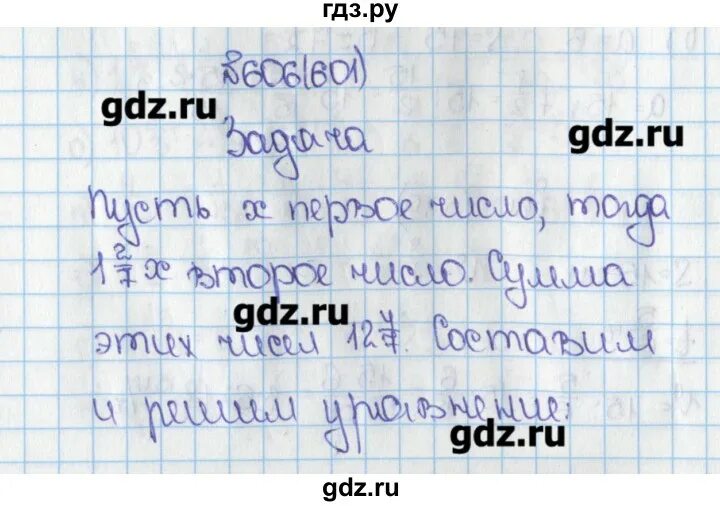 гдз.ру
№606(601)
gdz.ru
gdz.ru
Задача
Пусть x первое число, тогда
1 2/7 x второе число. Сумма
gdz.ru
этих чисел 12 4/7. Составим
и решим уравнение:
gdz.ru
gdz.ru